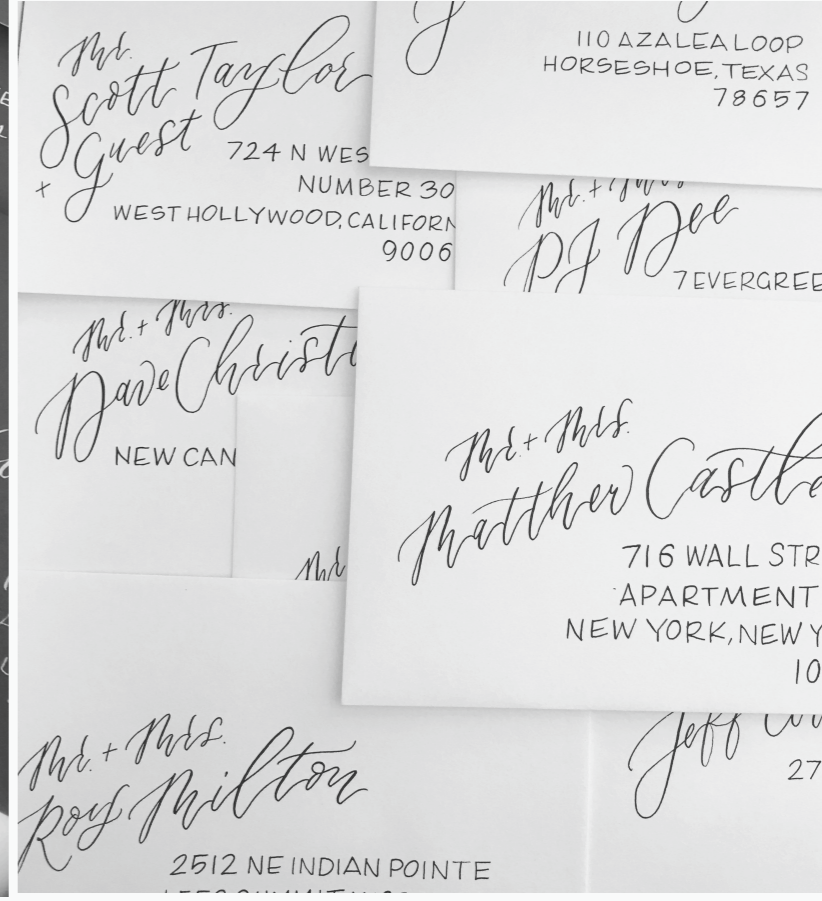 Mr.
Scott Taylor
+ Guest
724 N WES
NUMBER 30
WEST HOLLYWOOD, CALIFORN
9006
110 AZALEA LOOP
HORSESHOE, TEXAS
78657
Mr. + Mrs.
PJ Dee
7 EVERGREE
Mr. + Mrs.
Dave Christ
NEW CAN
Mr. + Mrs.
Matthew Castle
716 WALL STR
APARTMENT
NEW YORK, NEW Y
10
Mr.
Mr. + Mrs.
Roy Milton
2512 NE INDIAN POINTE
Jeff
27